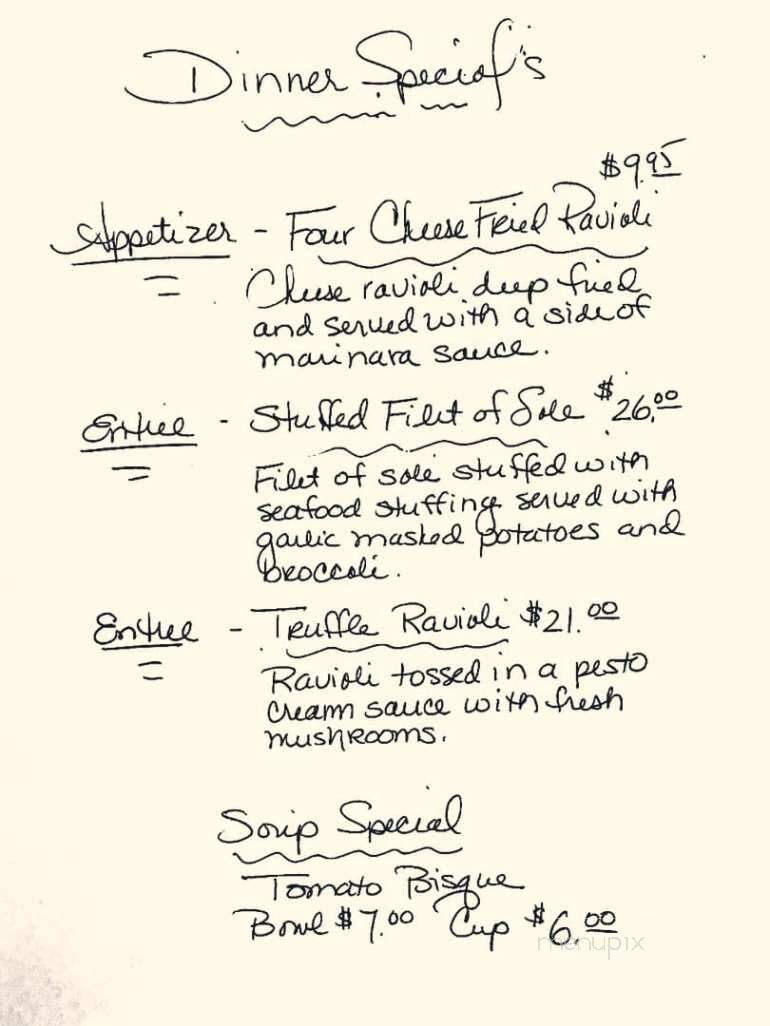 Dinner Special's
$9.95
Appetizer - Four Cheese Fried Ravioli
Cheese ravioli deep fried
and served with a side of
marinara sauce.
Entree - Stuffed Filet of Sole $26.00
Filet of sole stuffed with
seafood stuffing served with
garlic mashed potatoes and
broccoli.
Entree - Truffle Ravioli $21.00
Ravioli tossed in a pesto
cream sauce with fresh
mushrooms.
Soup Special
Tomato Bisque
Bowl $7.00 Cup $6.00
menupix